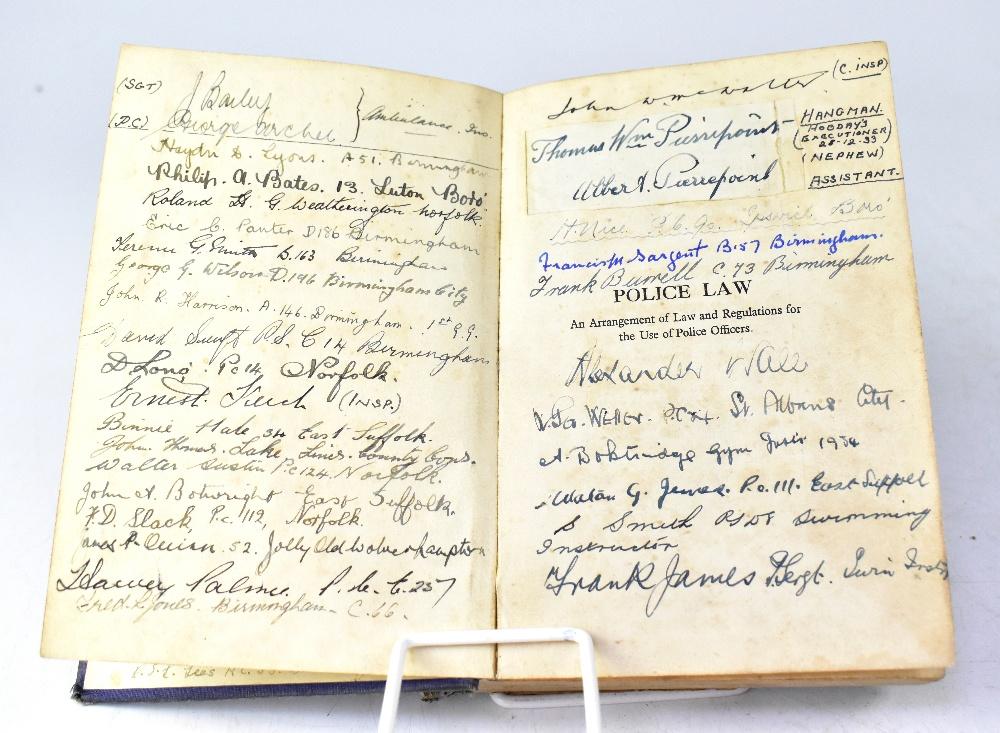 (SGT)
J Bailey
(D.C) George Archer } Ambulance. Ins.
Haydn D. Lyons. A 51. Birmingham
Philip. A. Bates. 13. Luton Boro'
Roland H. G. Weatherington Norfolk.
Eric C. Panter D186 Birmingham
Terence G. Smith D.163 Birmingham
George G. Wilson D.196 Birmingham City
John R. Harrison. A.146. Birmingham. 1st G.G.
David Swift P.S. C 14 Birmingham
D Long. Pc 14 Norfolk.
Ernest. (INSP.)
Binnie Hale 34 East Suffolk.
John Thomas Lake Lincs. County Cops.
Walter Austin P.c 124. Norfolk.
John A. Botwright East Suffolk.
F.D. Slack, P.c. 112, Norfolk.
Quinn. 52. Jolly Old Wolverhampton
Harvey Palmer P.C. C. 237
Fred L. Jones. Birmingham - C. 66.
John W. McWalter (C. INSP)
Thomas Wm Pierrepoint
Albert Pierrepoint
HANGMAN.
(TODAY'S EXECUTIONER)
28-12-33
(NEPHEW)
ASSISTANT.
A. Rice P.C. 90. Ipswich Boro'
Francis Sargent B.57 Birmingham.
Frank Burrell C.73 Birmingham
POLICE LAW
An Arrangement of Law and Regulations for
the Use of Police Officers.
Alexander Wall
Geo. Weller. St. Albans City.
A. Boktridge Gym Instr 1934
G. Jones. P.c. 111. East Suffolk
S Smith Swimming
Instructor
Frank James P.Sergt.